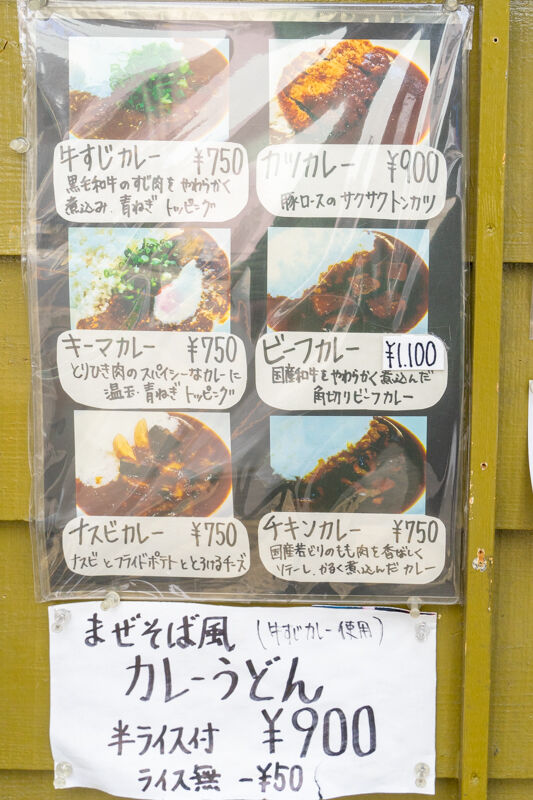 牛すじカレー ¥750
黒毛和牛のすじ肉をやわらかく
煮込み 青ねぎ トッピング
カツカレー ¥900
豚ロースのサクサクトンカツ
キーマカレー ¥750
とりひき肉のスパイシーなカレーに
温玉・青ねぎトッピング
ビーフカレー ¥1,100
国産和牛をやわらかく煮込んだ
角切りビーフカレー
ナスビカレー ¥750
ナスビとフライドポテトととろけるチーズ
チキンカレー ¥750
国産若どりのもも肉を香ばしく
ソテーし、かるく煮込んだカレー
まぜそば風 (牛すじカレー使用)
カレーうどん
半ライス付 ¥900
ライス無 -¥50